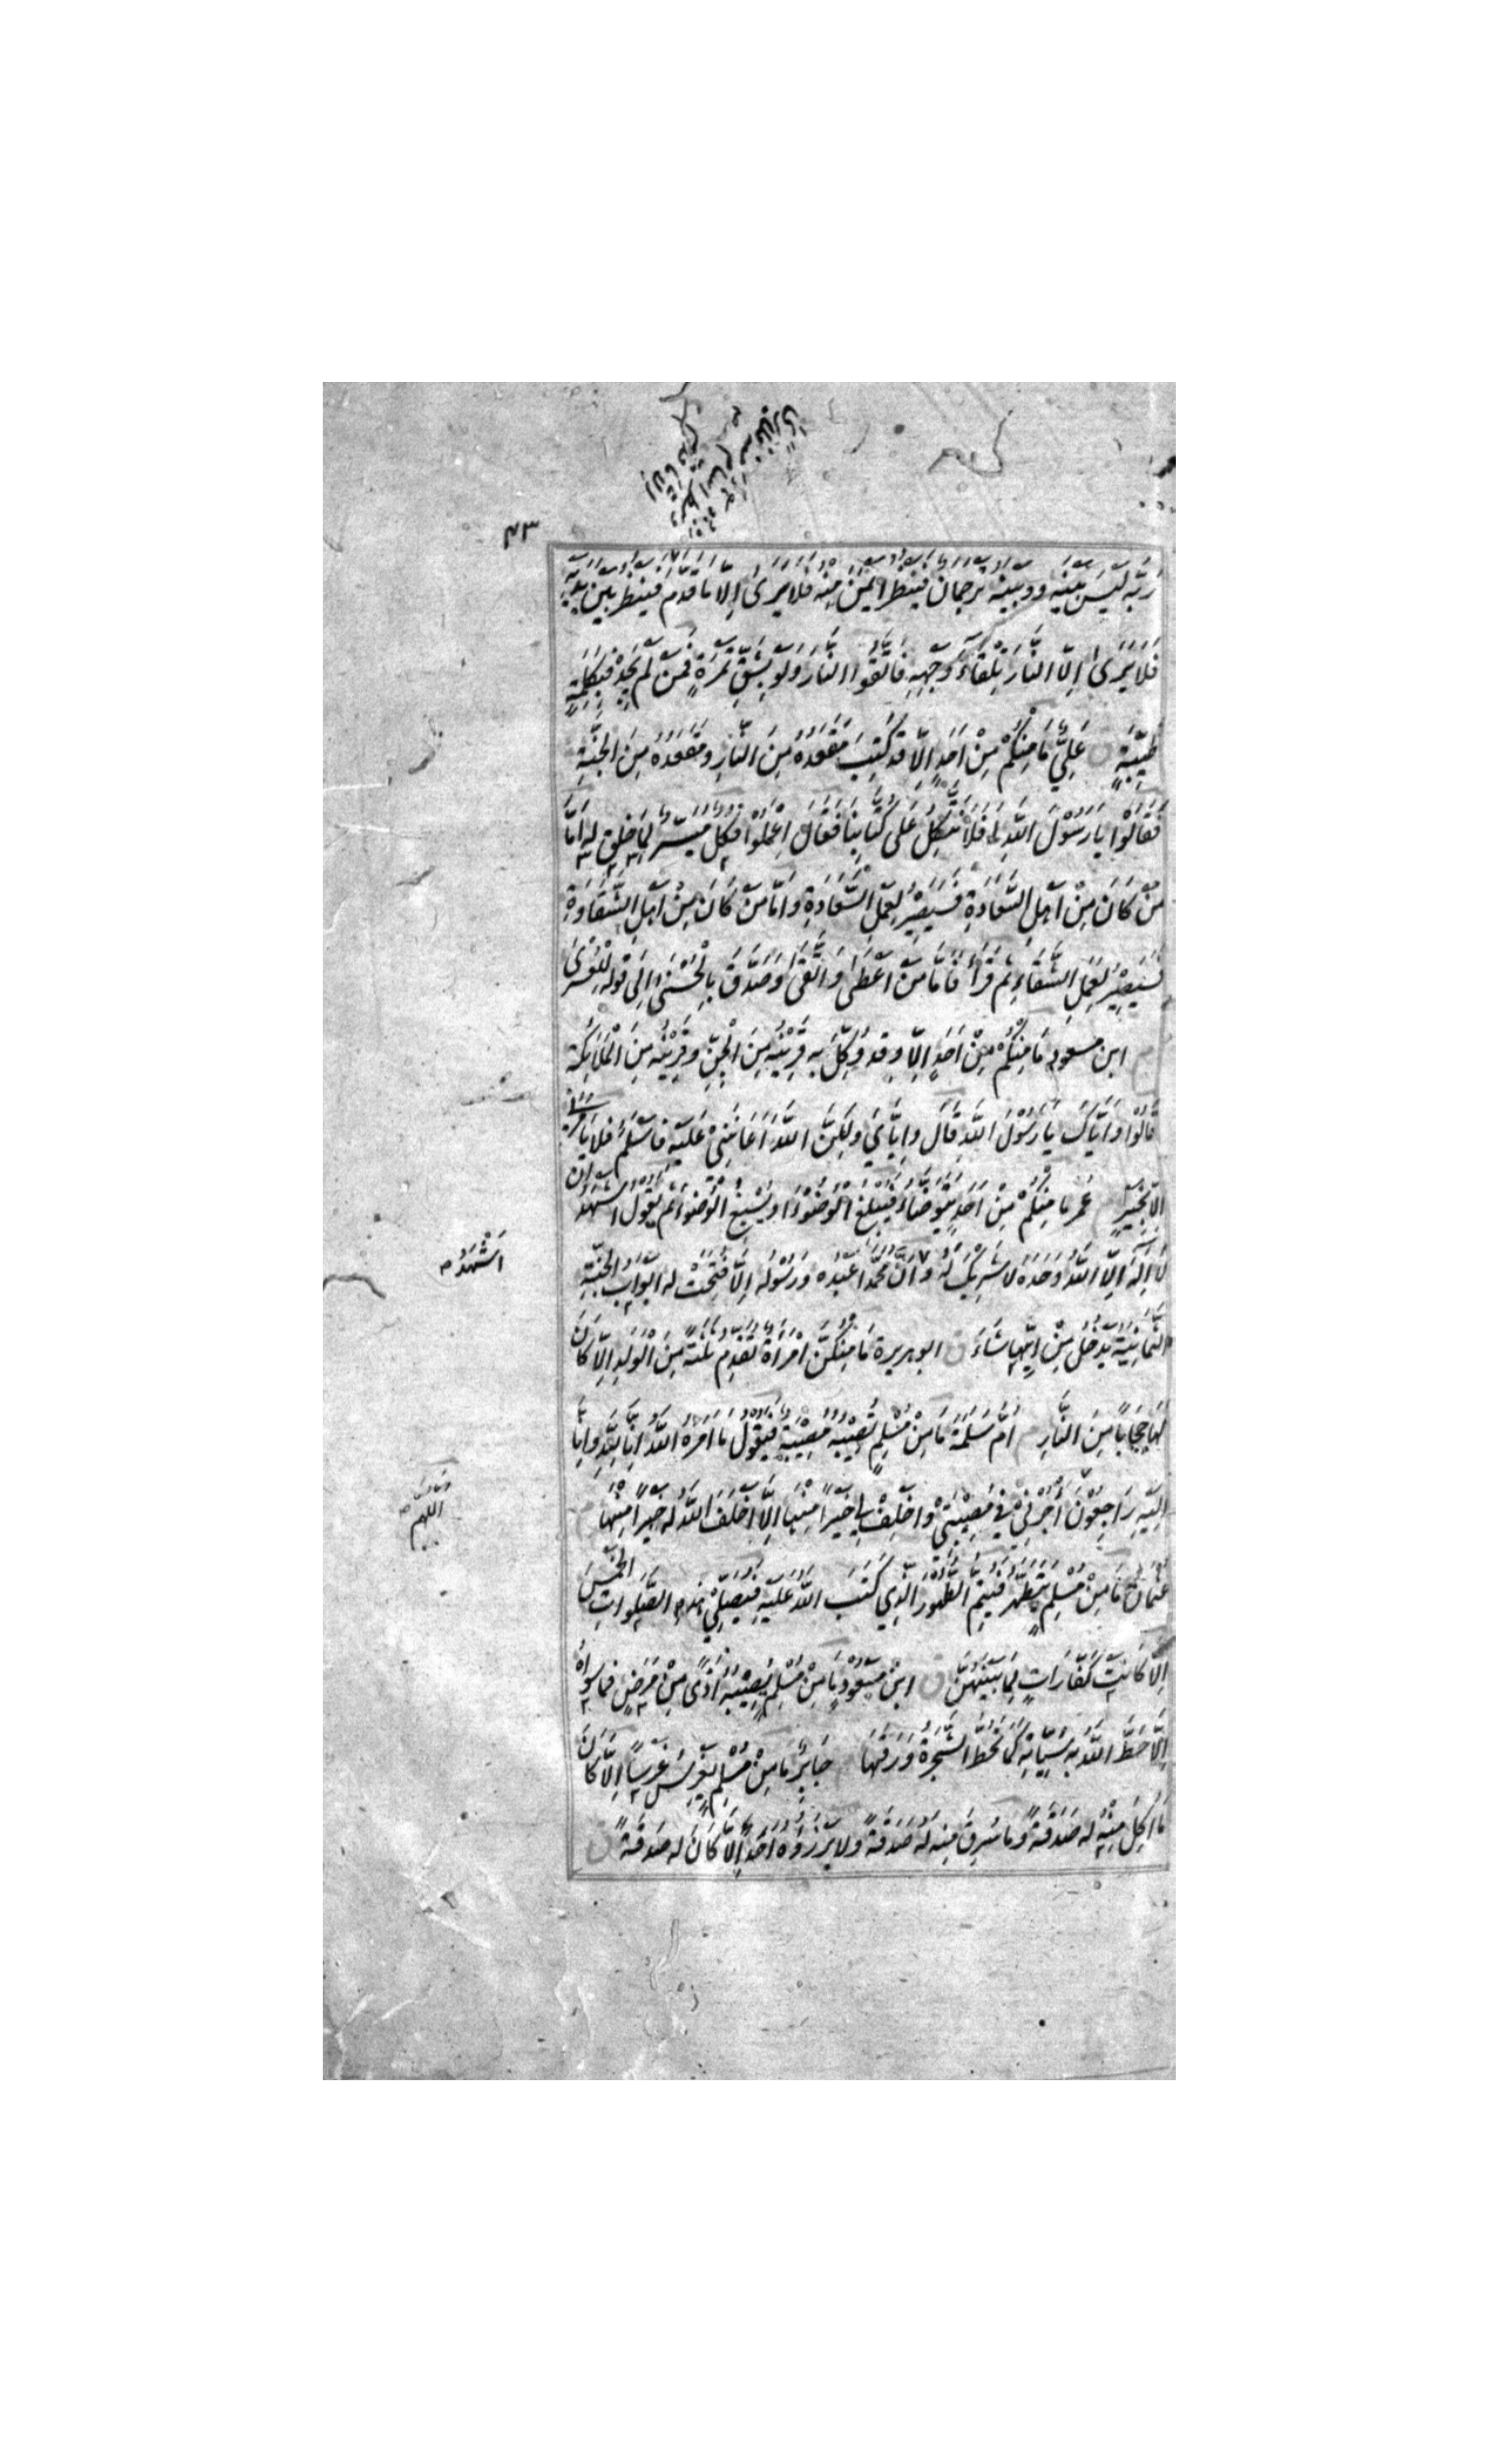 ٤٣
رَبَّهُ لَيْسَ بَيْنَهُ وَبَيْنَهُ تَرْجُمَانٌ فَيَنْظُرُ اَيْمَنَ مِنْهُ فَلَا يَرَى اِلَّا مَا قَدَّمَ فَيَنْظُرُ بَيْنَ يَدَيْهِ
فَلَا يَرَى اِلَّا النَّارَ تِلْقَاءَ وَجْهِهِ فَاتَّقُوا النَّارَ وَلَوْ بِشِقِّ تَمْرَةٍ فَمَنْ لَمْ يَجِدْ فَبِكَلِمَةٍ
طَيِّبَةٍ ق عَلِيٌّ مَا مِنْكُمْ مِنْ اَحَدٍ اِلَّا قَدْ كُتِبَ مَقْعَدُهُ مِنَ النَّارِ وَمَقْعَدُهُ مِنَ الْجَنَّةِ
فَقَالُوْا يَا رَسُوْلَ اللّٰهِ اَفَلَا نَتَّكِلُ عَلَى كِتَابِنَا فَقَالَ اِعْمَلُوْا فَكُلٌّ مُيَسَّرٌ لِمَا خُلِقَ لَهُ اَمَّا
مَنْ كَانَ مِنْ اَهْلِ السَّعَادَةِ فَسَيَصِيْرُ لِعَمَلِ السَّعَادَةِ وَاَمَّا مَنْ كَانَ مِنْ اَهْلِ الشَّقَاوَةِ
فَسَيَصِيْرُ لِعَمَلِ الشَّقَاءِ ثُمَّ قَرَأَ فَاَمَّا مَنْ اَعْطَى وَاتَّقَى وَصَدَّقَ بِالْحُسْنَى اِلَى قَوْلِهِ لِلْعُسْرَى
م ابن مسعود مَا مِنْكُمْ مِنْ اَحَدٍ اِلَّا وَقَدْ وُكِّلَ بِهِ قَرِيْنُهُ مِنَ الْجِنِّ وَقَرِيْنُهُ مِنَ الْمَلَائِكَةِ
قَالُوْا وَاِيَّاكَ يَا رَسُوْلَ اللّٰهِ قَالَ وَاِيَّايَ وَلَكِنَّ اللّٰهَ اَعَانَنِيْ عَلَيْهِ فَاَسْلَمَ فَلَا يَأْمُرُنِيْ
اِلَّا بِخَيْرٍ م عُمَر مَا مِنْكُمْ مِنْ اَحَدٍ يَتَوَضَّأُ فَيُبْلِغُ الْوُضُوْءَ اَوْ يُسْبِغُ الْوُضُوْءَ ثُمَّ يَقُوْلُ اَشْهَدُ اَنْ
لَا اِلٰهَ اِلَّا اللّٰهُ وَحْدَهُ لَا شَرِيْكَ لَهُ وَاَنَّ مُحَمَّدًا عَبْدُهُ وَرَسُوْلُهُ اِلَّا فُتِحَتْ لَهُ اَبْوَابُ الْجَنَّةِ
اَشْهَدُ
الثَّمَانِيَةُ يَدْخُلُ مِنْ اَيِّهَا شَاءَ ق ابو هريرة مَا مِنْكُنَّ امْرَأَةٌ تُقَدِّمُ ثَلٰثَةً مِنَ الْوَلَدِ اِلَّا كَانَ
لَهَا حِجَابًا مِنَ النَّارِ م اُمّ سَلَمَة مَا مِنْ مُسْلِمٍ تُصِيْبُهُ مُصِيْبَةٌ فَيَقُوْلُ مَا اَمَرَهُ اللّٰهُ اِنَّا لِلّٰهِ وَاِنَّا
اِلَيْهِ رَاجِعُوْنَ اُجُرْنِيْ فِيْ مُصِيْبَتِيْ وَاخْلِفْ لِيْ خَيْرًا مِنْهَا اِلَّا اَخْلَفَ اللّٰهُ لَهُ خَيْرًا مِنْهَا
اللهم
عُثْمَان مَا مِنْ مُسْلِمٍ يَتَطَهَّرُ فَيُتِمُّ الطُّهُوْرَ الَّذِيْ كَتَبَ اللّٰهُ عَلَيْهِ فَيُصَلِّيْ هٰذِهِ الصَّلَوَاتِ الْخَمْسَ
اِلَّا كَانَتْ كَفَّارَاتٍ لِمَا بَيْنَهُنَّ ق ابن مَسْعُوْد مَا مِنْ مُسْلِمٍ يُصِيْبُهُ اَذًى مِنْ مَرَضٍ فَمَا سِوَاهُ
اِلَّا حَطَّ اللّٰهُ بِهِ سَيِّئَاتِهِ كَمَا تَحُطُّ الشَّجَرَةُ وَرَقَهَا م جَابِر مَا مِنْ مُسْلِمٍ يَغْرِسُ غَرْسًا اِلَّا كَانَ
مَا اُكِلَ مِنْهُ لَهُ صَدَقَةً وَمَا سُرِقَ مِنْهُ لَهُ صَدَقَةً وَلَا يَرْزَؤُهُ اَحَدٌ اِلَّا كَانَ لَهُ صَدَقَةً ق